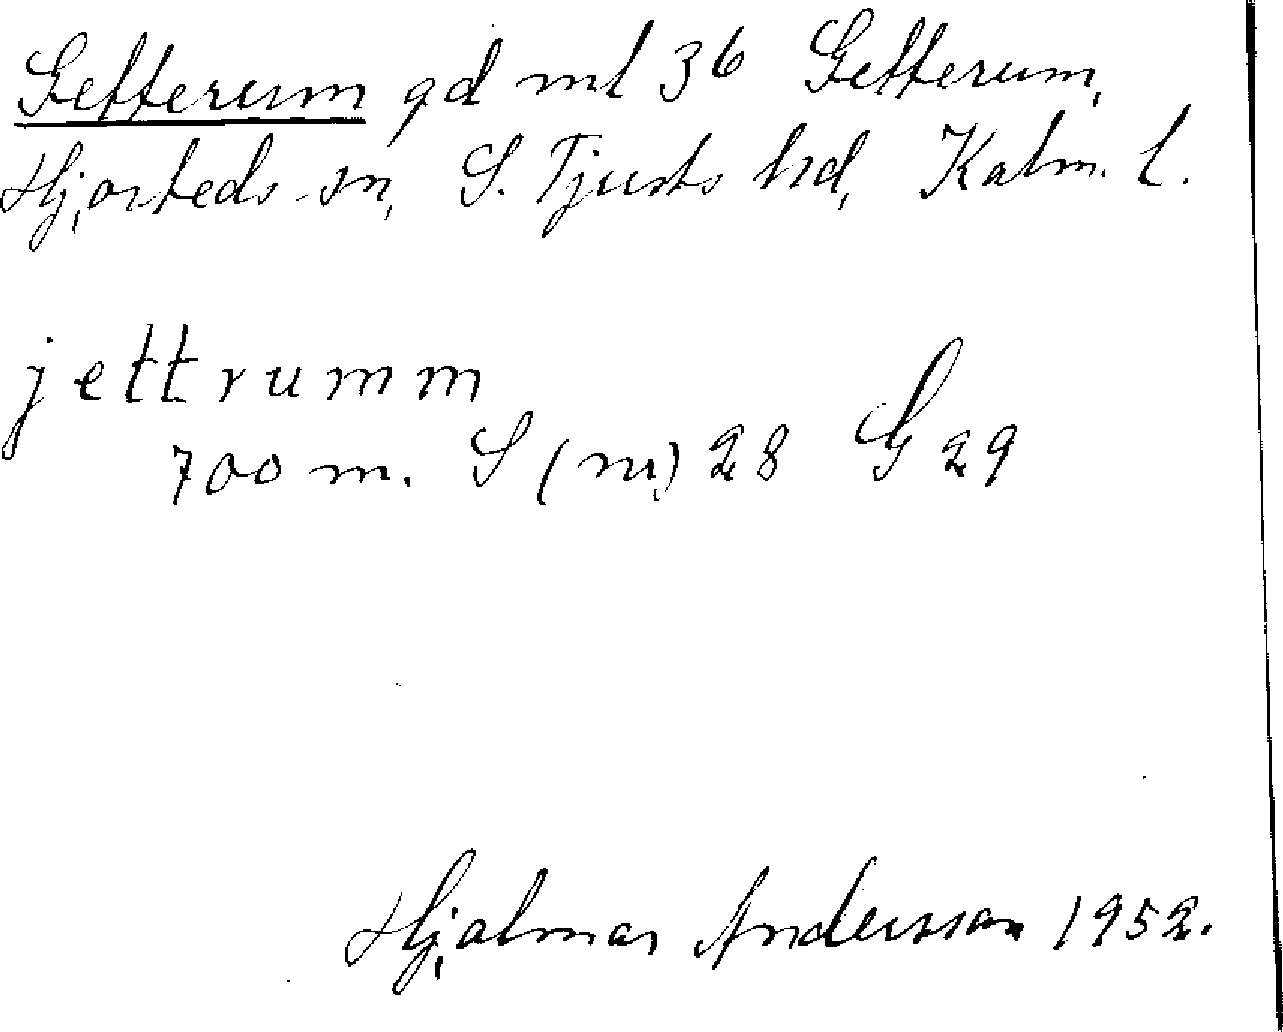 Getterum gd ml 36 Getterum,
Hjorteds sn, S. Tjusts hd, Kalm. l.
jettrumm
700 m. S (nu) 28 G 29
Hjalmar Andersson 1952.